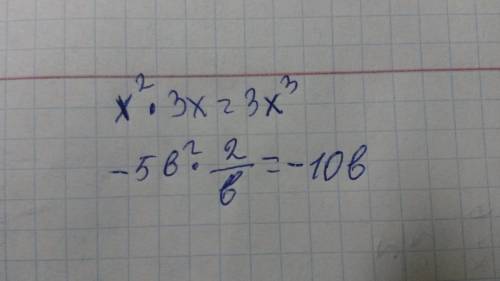 x² · 3x = 3x³
-5b² · 2/b = -10b